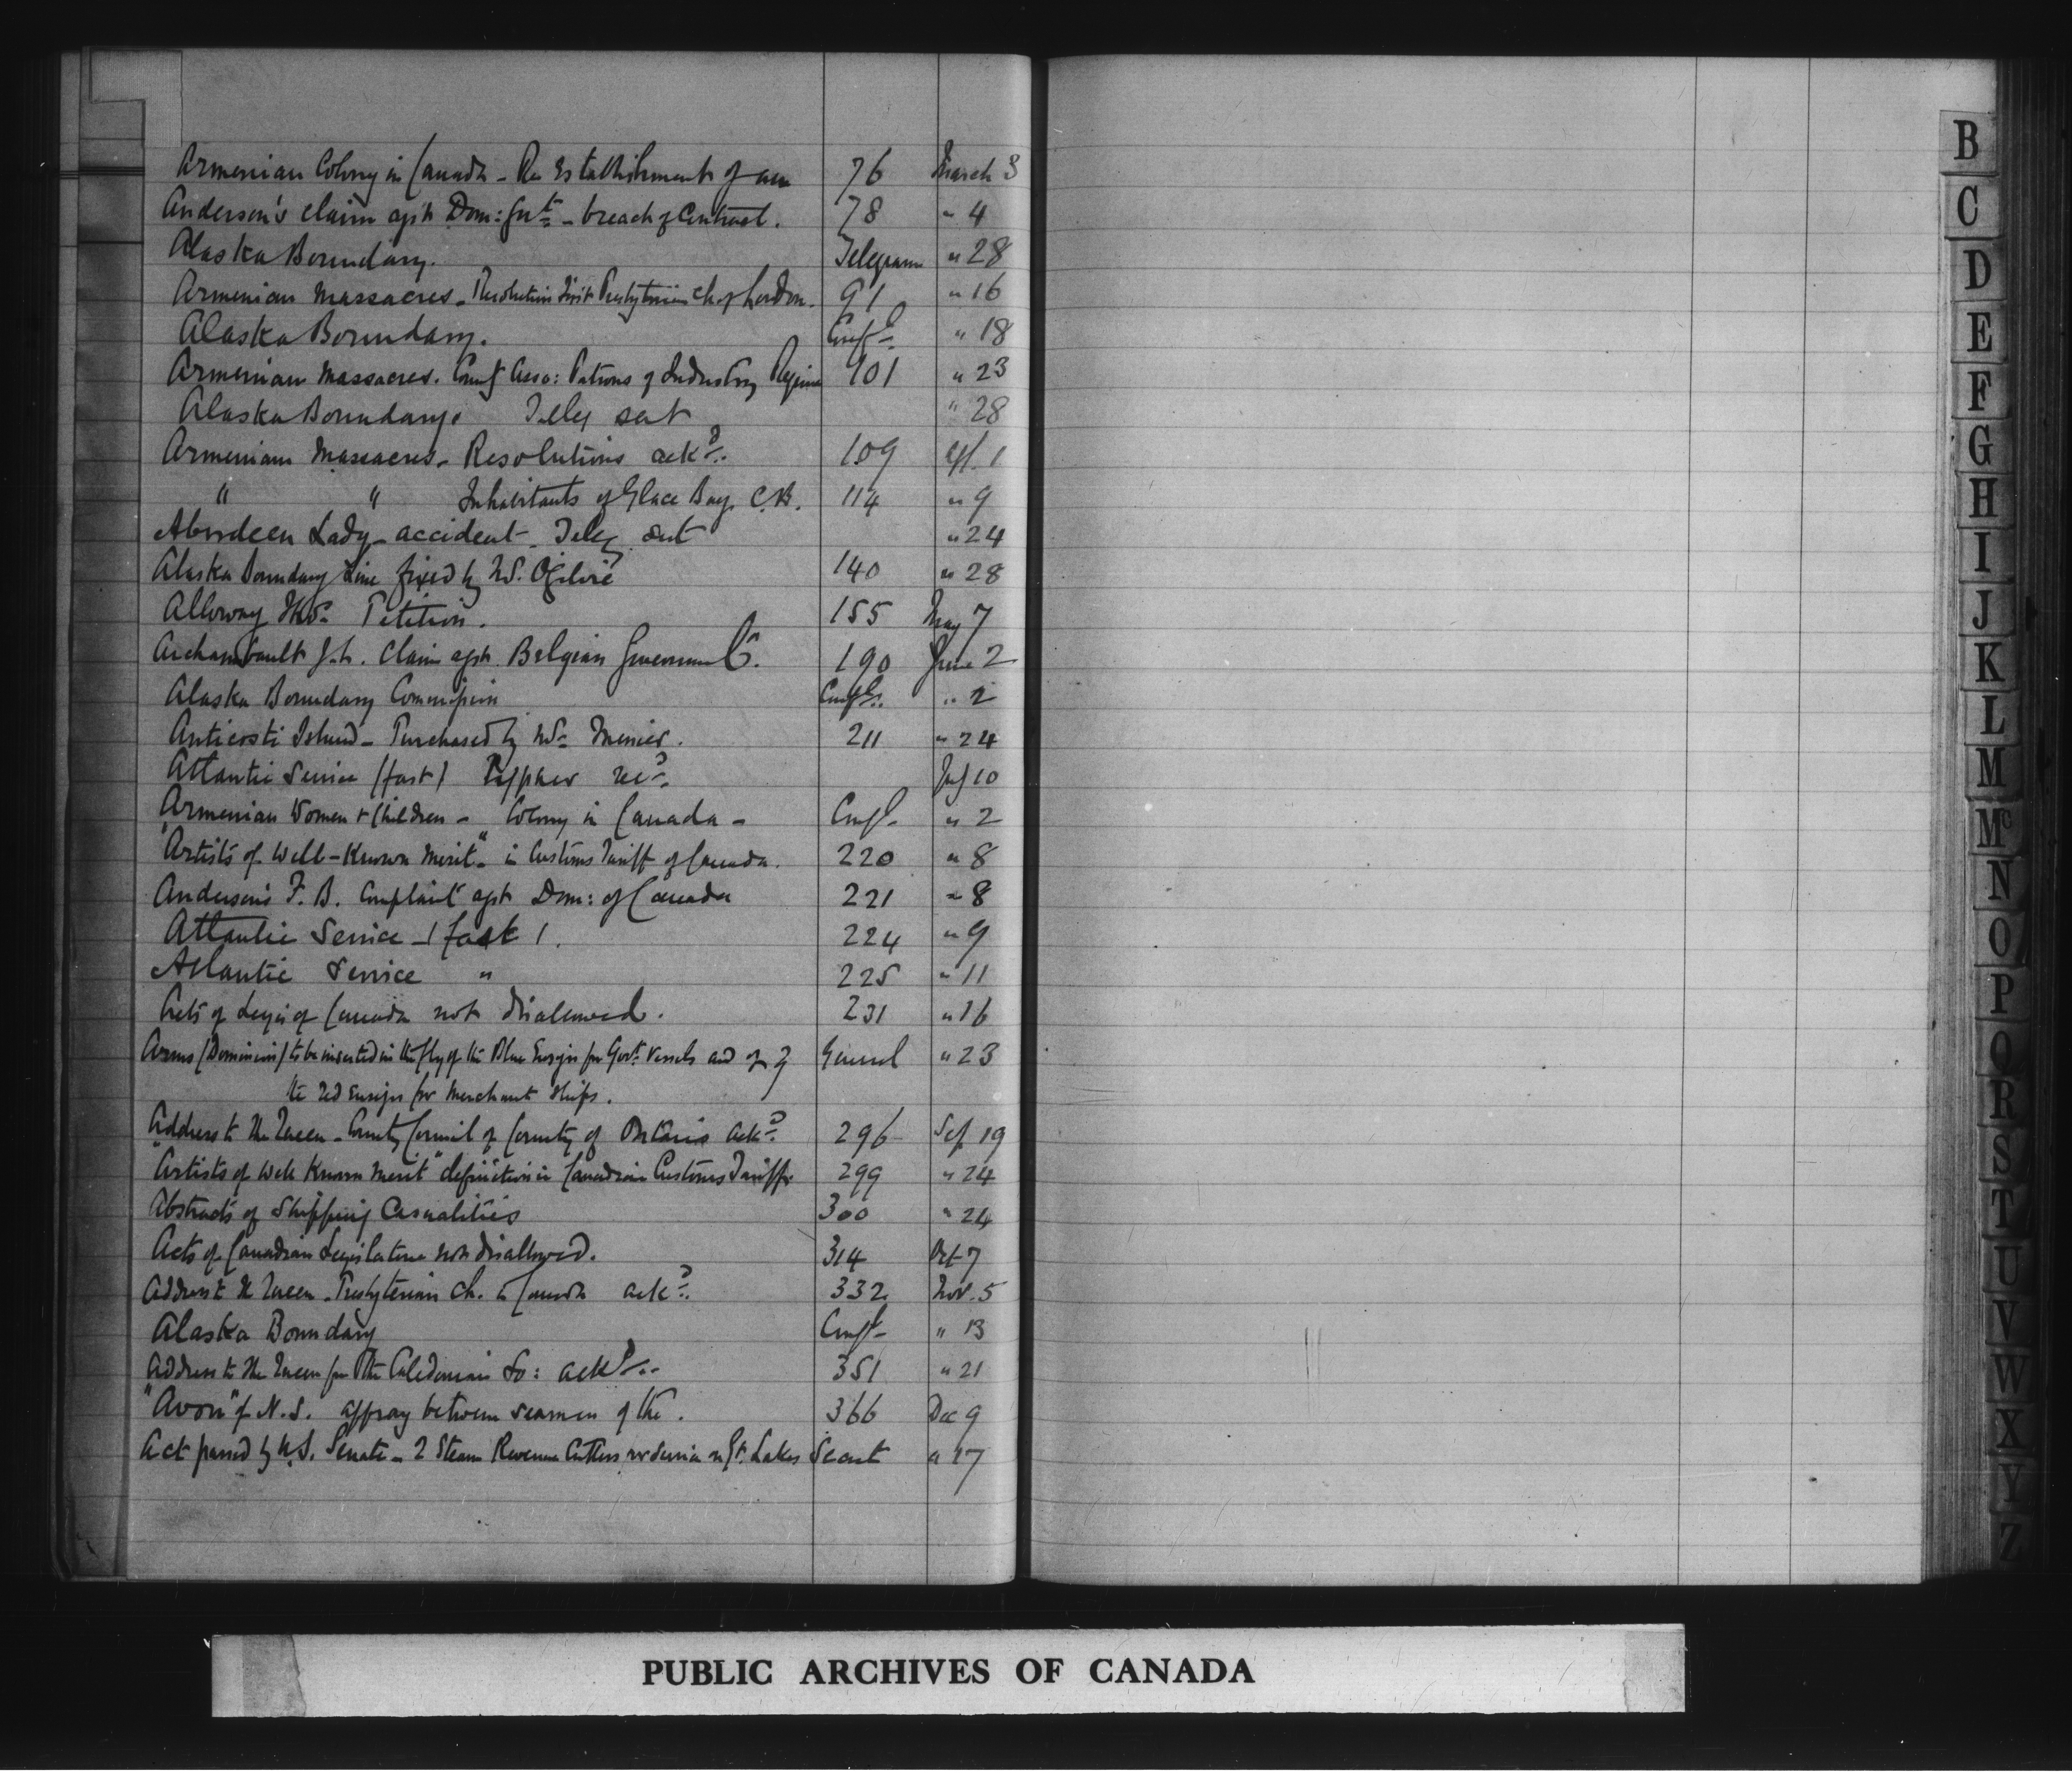 Armenian Colony in Canada - Re Establishment of an 76 March 3
Anderson's claim agst Dom: Govt - breach of Contract. 78 " 4
Alaska Boundary. Telegram " 28
Armenian Massacres - Resolution First Presbyterian Ch of London. 91 " 16
Alaska Boundary. Confl " 18
Armenian Massacres. County Asso: Patrons of Industry Regina 101 " 23
Alaska Boundary. Teleg sent " 28
Armenian Massacres - Resolutions ackd. 109 Apl. 1
" " Inhabitants of Glace Bay, C.B. 114 " 9
Aberdeen Lady - accident - Teleg sent " 24
Alaska Boundary Line fixed by Mr. Ogilvie 140 " 28
Alloway Petition. 155 May 7
Archambault claim agst. Belgian Government. 190 June 2
Alaska Boundary Commission Confl. " 2
Anticosti Island - Purchased by Mr Menier. 211 " 24
Atlantic Service (fast) Cypher recd. July 10
Armenian Women & Children - Colony in Canada - Confl " 2
"Artists of Well-Known Merit" - in Customs Tariff of Canada. 220 " 8
Anderson's F. B. Complaint agst Dom: of Canada 221 " 8
Atlantic Service - (fast). 224 " 9
Atlantic Service " 225 " 11
Acts of Legis of Canada not disallowed. 231 " 16
Arms (Dominion) to be inserted in the fly of the Blue Ensign for Govt. Vessels and of General " 23
the red ensign for Merchant Ships.
Address to the Queen - County Council of County of Ontario ackd. 296 Sep 19
"Artists of well known merit" definition in Canadian Customs Tariff. 299 " 24
Abstracts of Shipping Casualities 300 " 24
Acts of Canadian Legislature not disallowed. 314 Oct 7
Address to the Queen - Presbyterian Ch. in Canada ackd. 332 Nov. 5
Alaska Boundary Confl " 13
Address to the Queen from the Caledonian So: ackd. 351 " 21
"Avon" of N.S. affray between seamen of the. 366 Dec 9
Act passed by U.S. Senate - 2 Steam Revenue Cutters for service on Gt. Lakes Secret " 17
B
C
D
E
F
G
H
I
J
K
L
M
Mc
N
O
P
Q
R
S
T
U
V
W
X
Y
Z
PUBLIC ARCHIVES OF CANADA